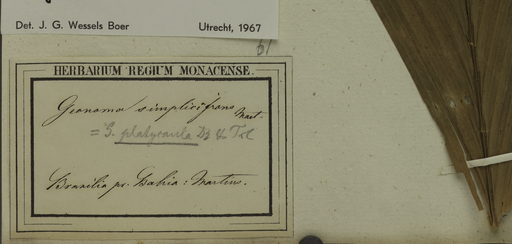 Det. J. G. Wessels Boer Utrecht, 1967
HERBARIUM REGIUM MONACENSE.
Geonoma simplicifrons
Mart.
= G. platycaula Dr & Trl
Brasilia pr. Bahia: Martius.